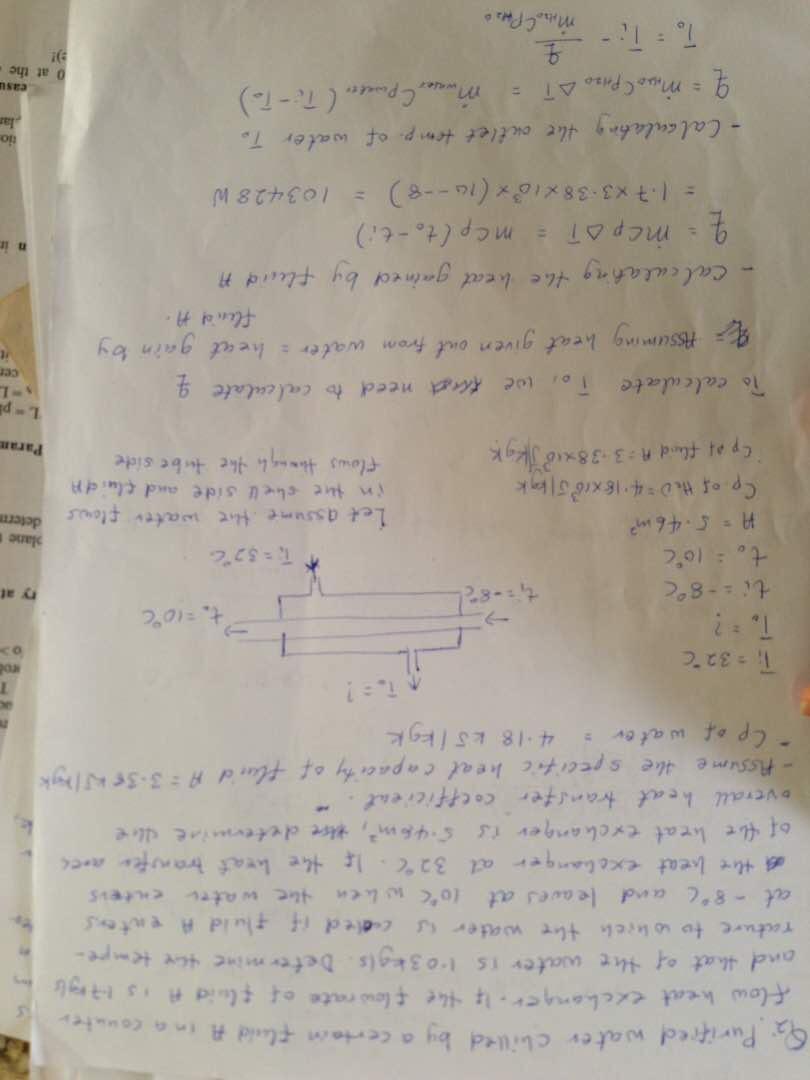 Q2. Purified water chilled by a certain fluid A in a counter
flow heat exchanger. If the flowrate of fluid A is 1.7kg/s
and that of the water is 1.03kg/s. Determine the tempe-
rature to which the water is cooled if fluid A enters
at -8°C and leaves at 10°C when the water enters
the heat exchanger at 32°C. If the heat transfer area
of the heat exchanger is 5.46m², determine the
overall heat transfer coefficient.
- Assume the specific heat capacity of fluid A = 3.38 kJ/kgK
- Cp of water = 4.18 kJ/kgK
Ti = 32°C
To = ?
ti = -8°C
to = 10°C
A = 5.46m²
Cp of H2O = 4.18x10³J/kgK
Cp of fluid A = 3.38x10³J/kgK
To = ?
to = 10°C
ti = -8°C
Ti = 32°C
Let assume the water flows
in the shell side and fluid A
flows through the tube side
To calculate To, we need to calculate q
Assuming heat given out from water = heat gain by
fluid A.
- Calculating the heat gained by fluid A
q = ṁCpΔT = ṁCp(to-ti)
= 1.7x3.38x10³x(10--8) = 103428W
- Calculating the outlet temp. of water To
q = ṁH2O CpH2O ΔT = ṁwater Cpwater (Ti-To)
To = Ti - q / ṁH2O CpH2O
Param
ry at
plane
determ
easu
0 at the
n in